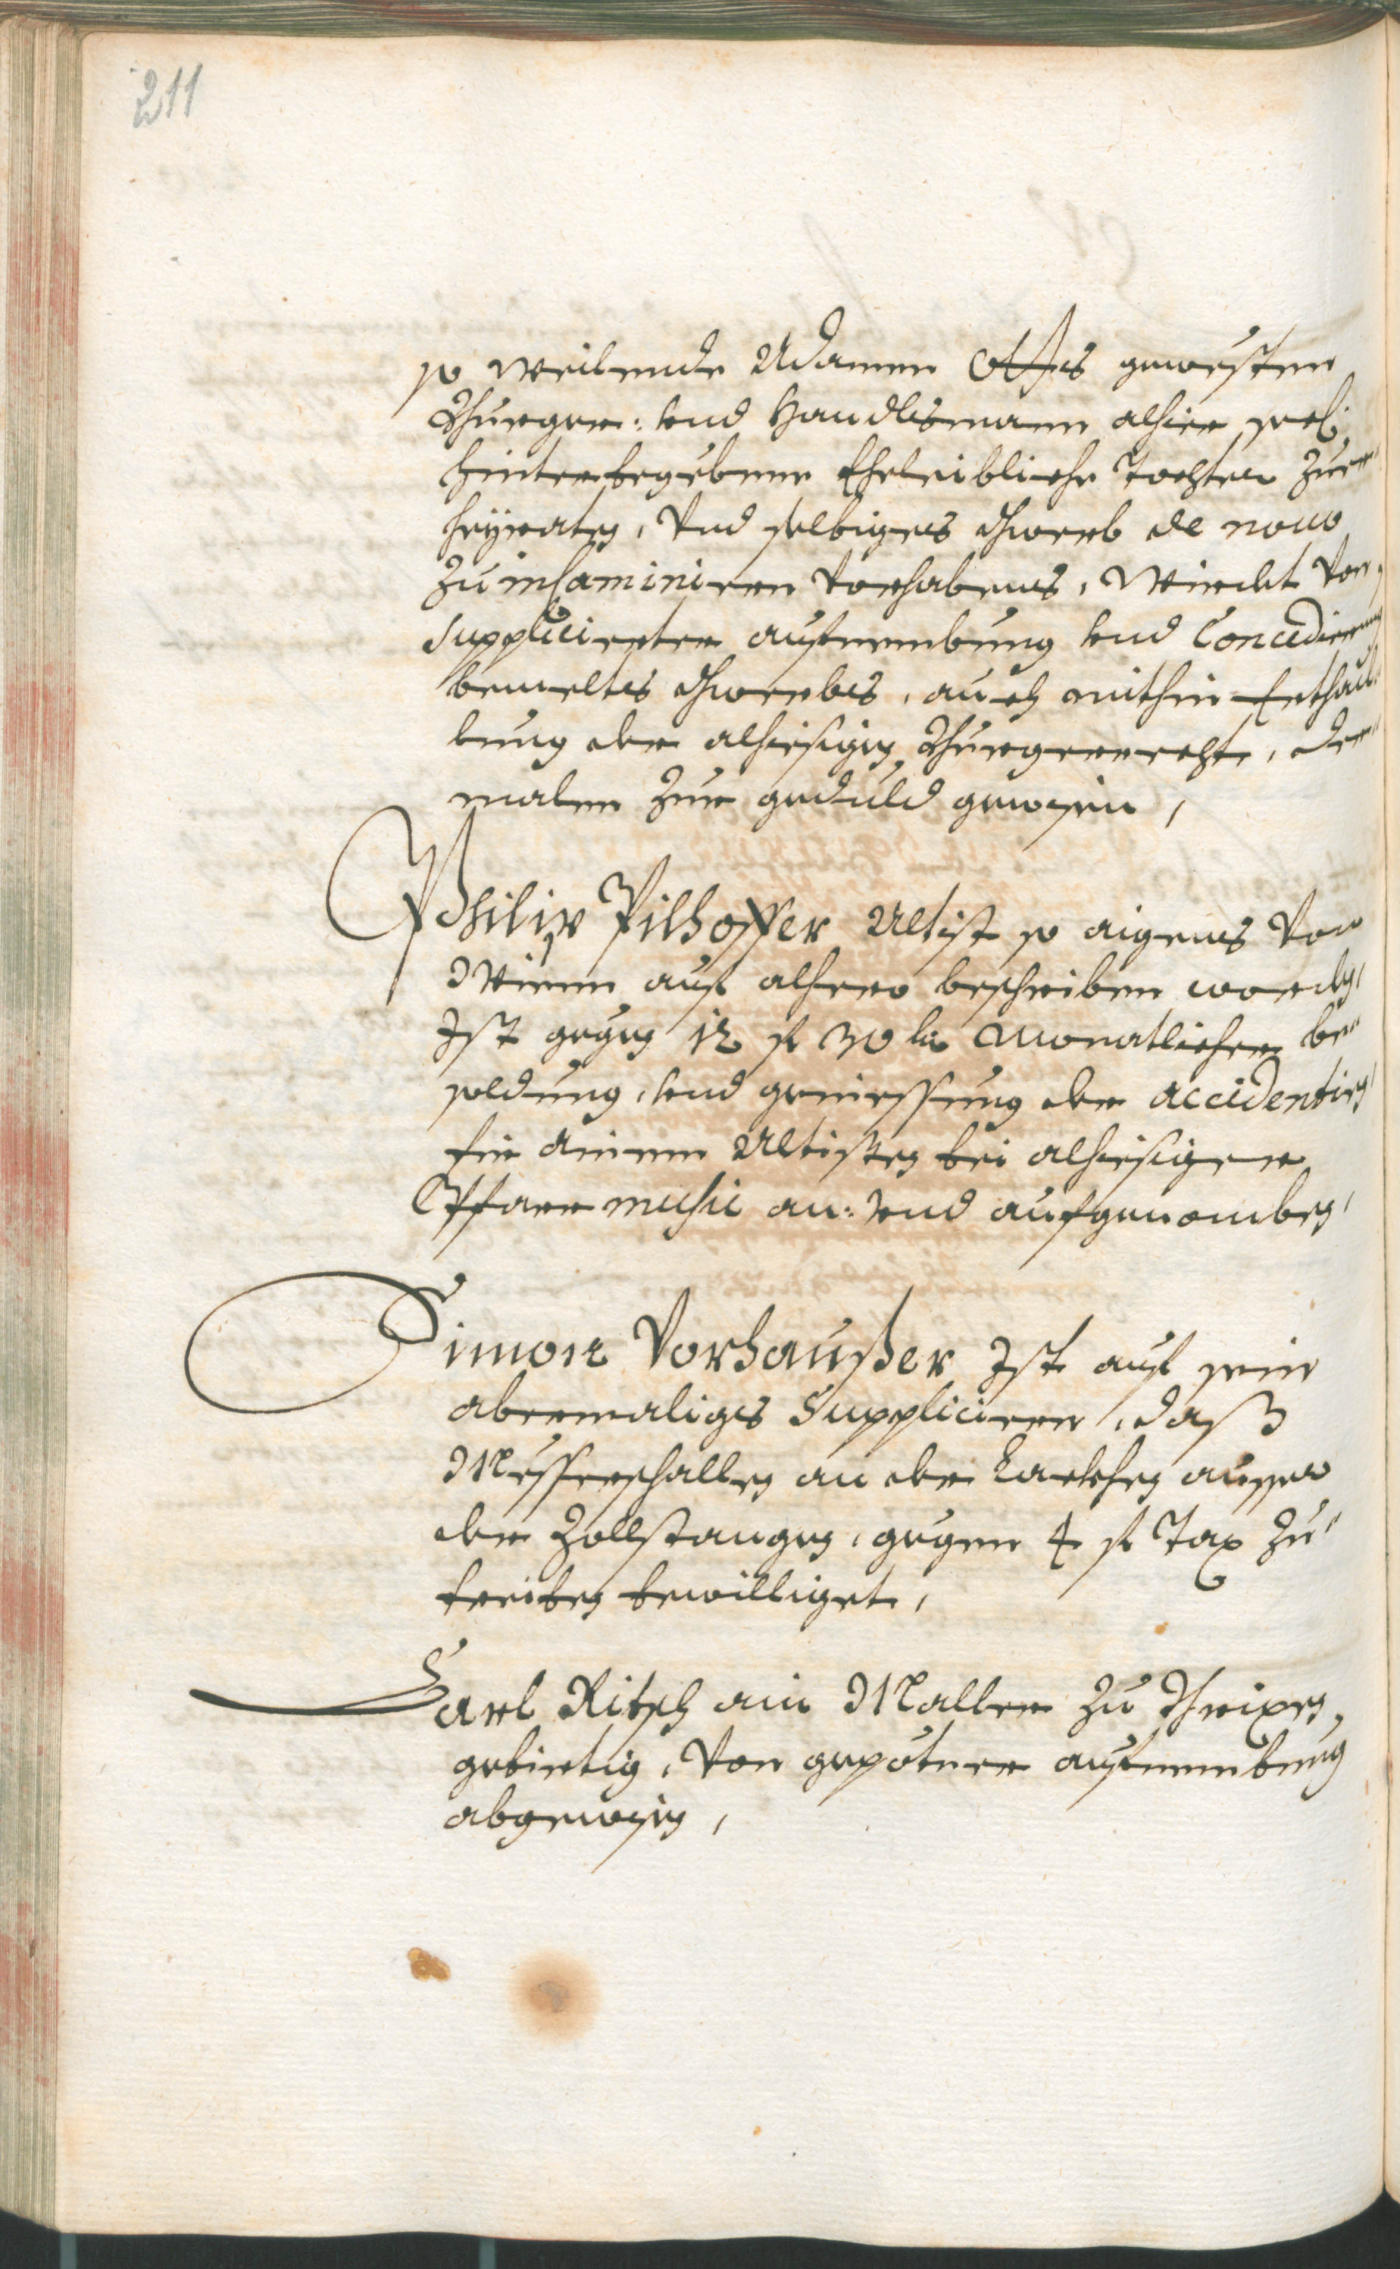 211
so weilende Adamen Otts gewesten
Burger: vnd Handlsmann alhier seel:
hinterbegebene Eheleibliche Tochter zuer
heyraten, vnd selbiges Gwerb de nouo
zu insaminiren vorhabens, Wirdet von
Supplicierter aufnembung vnd Concedierung
bemeltes Gwerbes, auch mithin Erthail-
lung der alhiesigen Burgerrecht, der-
malen zur geduld gewisen,
Philip Pilhoffer Altist so aigens von
Wienn aus alhero beschriben worden,
Ist gegen 12 fl 30 kr Monatlicher be-
soldung, vnd geniessung der Accidentien
für ainen Altisten bei alhiesiger
Pfarr music an: vnd aufgenomben,
Simon Vorhaußer Ist auf sein
abermaliges Supplicieren, daß
Messerschallen an der Lackhen ausser
der Zollstangen, gegen 4 fl Tax zu-
treiben bewilliget,
Carl Ritsch ain Maller zu Brixen
gebirtig, von gepotner aufnembung
abgewisen,